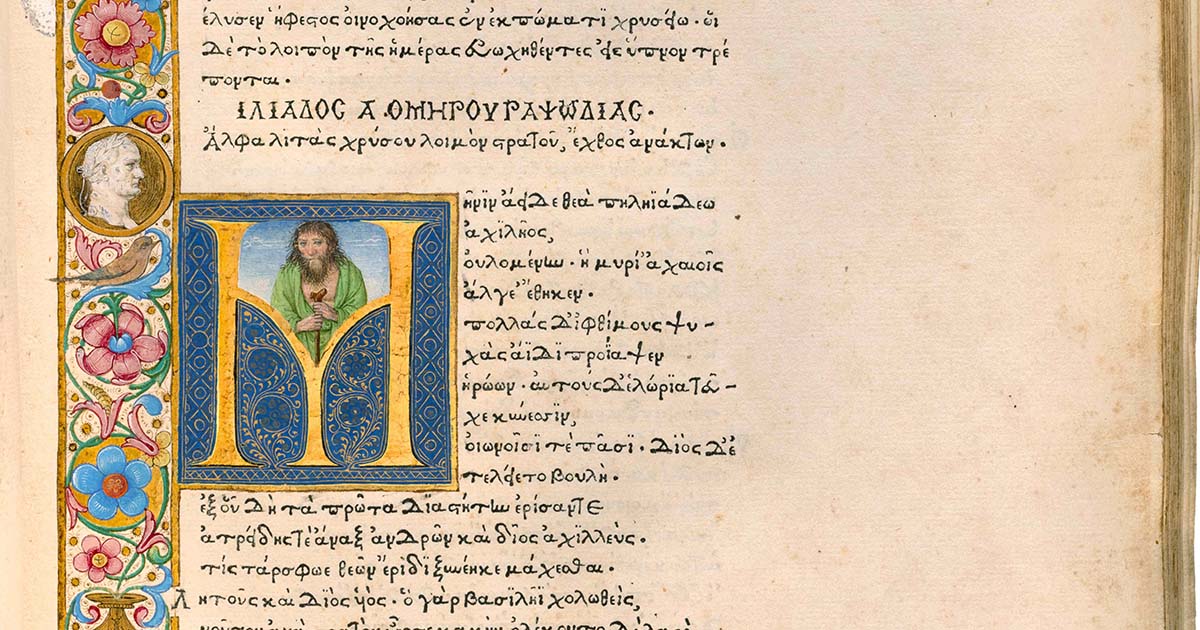 ἔλυσεν ἥφεστος οἰνοχοήσας ἐν ἐκπώματι χρυσέω· οἱ
δὲ τὸ λοιπὸν τῆς ἡμέρας εὐωχηθέντες εἰς ὕπνον τρέ
πονται·
ΙΛΙΑΔΟС Α·ΟΜΗΡΟΥ ΡΑΨΩΔΙΑС·
Ἄλφα λιτὰς χρύσου λοιμὸν στρατοῦ, ἔχθος ἀνάκτων·
Μῆνιν ἄειδε θεὰ πηληϊάδεω
ἀχιλῆος,
οὐλομένην· ἣ μυρί' ἀχαιοῖς
ἄλγε' ἔθηκεν·
πολλὰς δ' ἰφθίμους ψυ-
χὰς ἄϊδι προΐαψεν
ἡρώων· αὐτοὺς δ' ἑλώρια τεῦ-
χε κύνεσσιν,
οἰωνοῖσί τε πᾶσι· Διὸς δ' ἐ
τελείετο βουλή·
ἐξ οὗ δὴ τὰ πρῶτα διαστήτην ἐρίσαντε
ἀτρείδης τὲ ἄναξ ἀνδρῶν καὶ δῖος ἀχιλλεύς·
τίς τάρ σφωε θεῶν ἔριδι ξυνέηκε μάχεσθαι·
Λητοῦς καὶ Διὸς υἱός· ὁ γὰρ βασιλῆϊ χολωθείς,